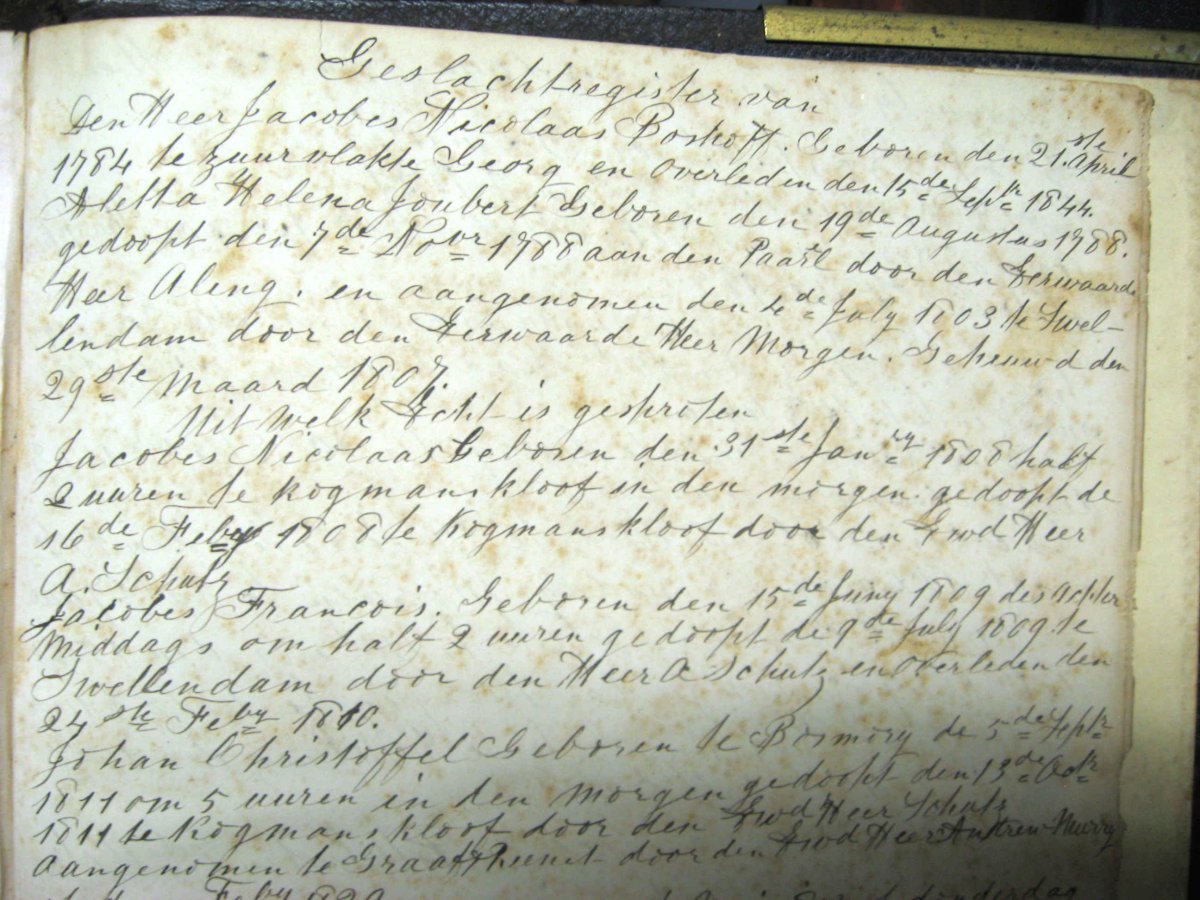 Geslachtregister van
Den Heer Jacobes Nicolaas Boshoff. Geboren den 21.ste April
1784 te zuurvlakte Georg en overleden den 15de Septr 1844.
Aletta Helena Joubert Geboren den 19de Augustus 1788.
gedoopt den 7de Novr 1788 aan den Paarl door den Eerwaarde
Heer Aling. en aangenomen den 4de July 1803 te Swel-
lendam door den Eerwaarde Heer Morgen. Getrouwd den
29ste Maard 1807.
Uit welk Echt is gesproten
Jacobes Nicolaas Geboren den 31ste Janry 1808 half
2 uuren te Kogmanskloof in den morgen gedoopt de
16de Feby 1808 te Kogmanskloof door den Erwd Heer
A. Schutz
Jacobes Francois. Geboren den 15de Juny 1809 des achter
middags om half 2 uuren gedoopt de 9de July 1809. te
Swellendam door den Heer A Schutz en overleden den
24ste Feby 1810.
Johan Christoffel Geboren te de 5de Septr
1811 om 5 uuren in den morgen gedoopt den 13de Octr
1811 te Kogmanskloof door den Erwd Heer Schutz
aangenomen te Graaffreenet door den Erwd Heer Andrew Murry
Feby donderdag